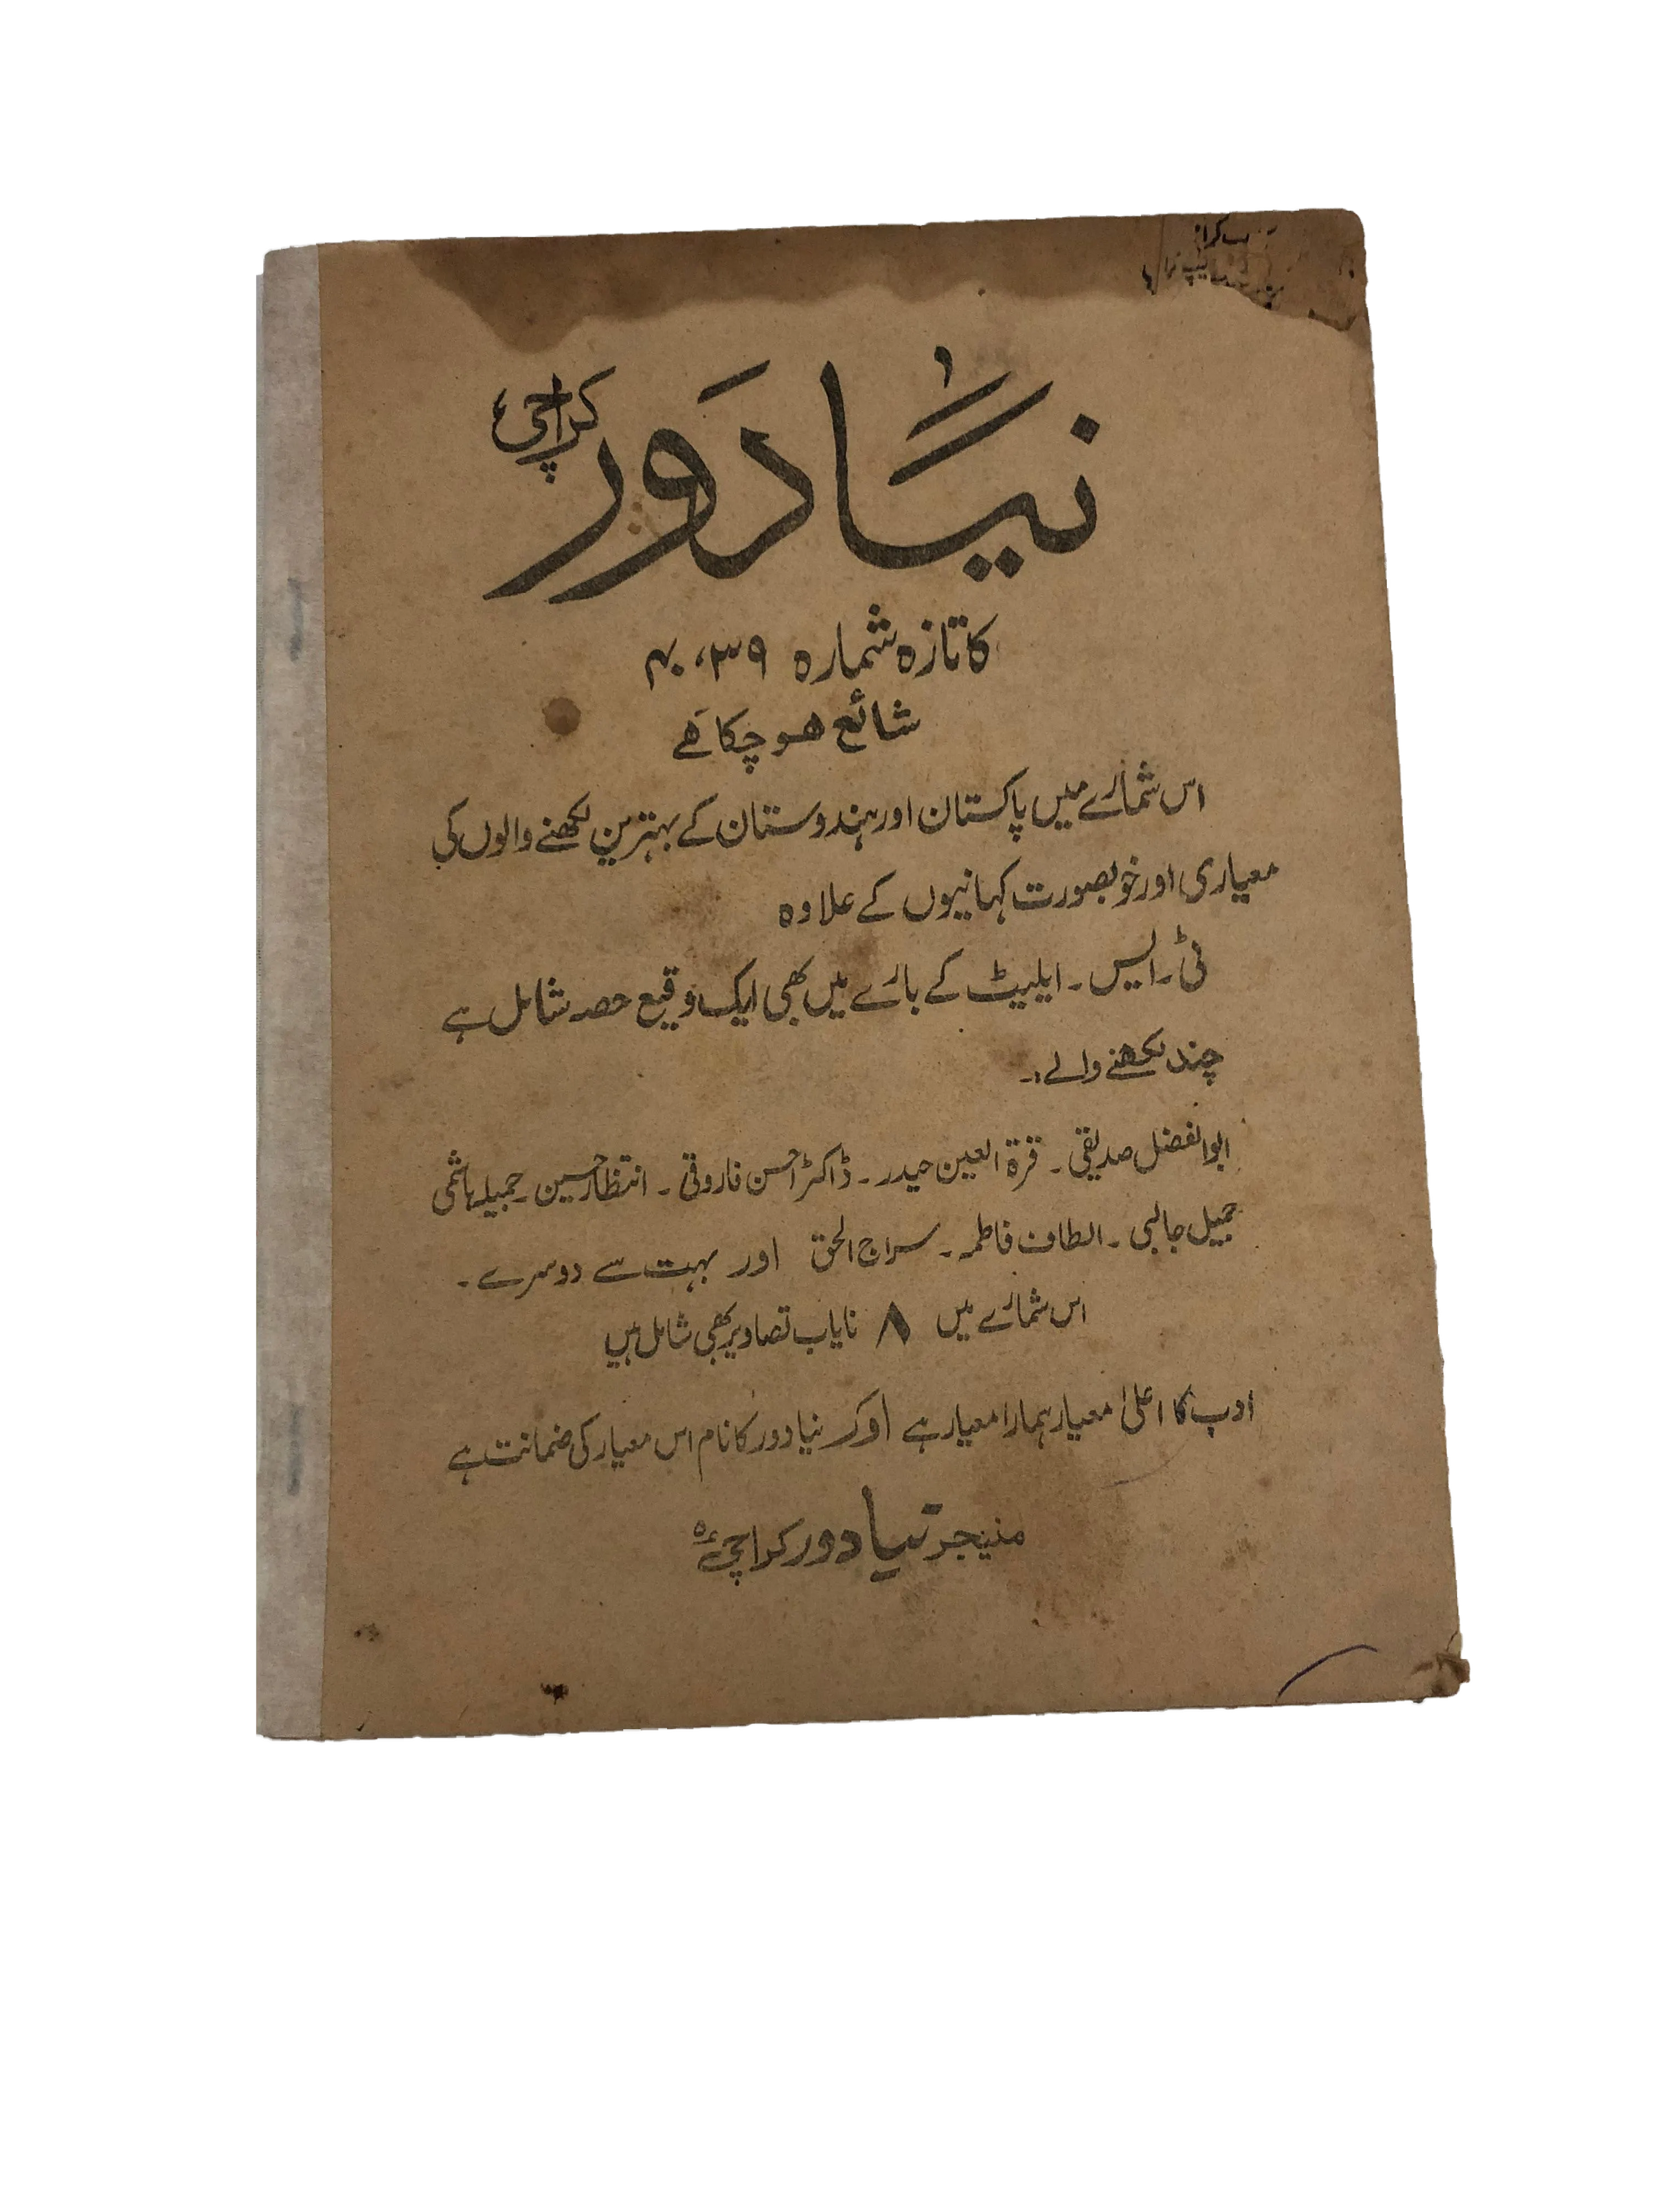 نیا دَور کراچی
کا تازہ شمارہ ۳۹، ۴۰
شائع ہو چکا ہے
اس شمارے میں پاکستان اور ہندوستان کے بہترین لکھنے والوں کی
معیاری اور خوبصورت کہانیوں کے علاوہ
ٹی۔ ایس۔ ایلیٹ کے بارے میں بھی ایک وقیع حصہ شامل ہے
چند لکھنے والے:۔
ابوالفضل صدیقی۔ قرۃ العین حیدر۔ ڈاکٹر احسن فاروقی۔ انتظار حسین۔ جمیلہ ہاشمی
جمیل جالبی۔ الطاف فاطمہ۔ سراج الحق اور بہت سے دوسرے۔
اس شمارے میں ۸ نایاب تصاویر بھی شامل ہیں
ادب کا اعلیٰ معیار ہمارا معیار ہے اور نیا دور کا نام اس معیار کی ضمانت ہے
منیجر نیا دور کراچی ۵